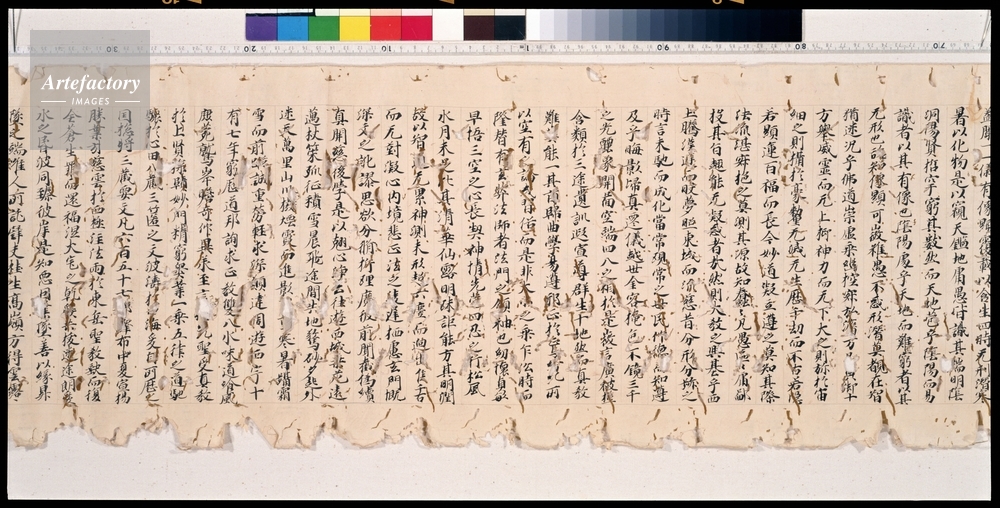 Artefactory
IMAGES
蓋聞二儀有像顯覆載以含生四時无形潛寒
暑以化物是以窺天鑑地庸愚皆識其端明陰
洞陽賢哲罕窮其數然而天地苞乎陰陽而易
識者以其有像也陰陽處乎天地而難窮者以其
无形也故知像顯可徵雖愚不惑形潛莫覩在智
猶迷況乎佛道崇虛乘幽控寂弘濟万品典御十
方舉威靈而无上抑神力而无下大之則弥於宙
細之則攝於豪釐无滅无生歷千劫而不古若隱
若顯運百福而長今妙道凝玄遵之莫知其際
法流湛寂挹之莫測其源故知蠢蠢凡愚區區庸鄙
投其旨趣能无疑惑者哉然則大教之興基乎西
土騰漢庭而皎夢照東域而流慈昔者分形分跡之
時言未馳而成化當常現常之世民仰德而知遵
及乎晦影歸真遷儀越世金容掩色不鏡三千
之光麗象開圖空端四八之相於是微言廣被拯
含類於三途遺訓遐宣導群生於十地然而真教
難仰莫能一其旨歸曲學易遵邪正於焉紛糺所
以空有之論或習俗而是非大小之乘乍沿時而
隆替有玄奘法師者法門之領袖也幼懷貞敏
早悟三空之心長契神情先苞四忍之行松風
水月未足比其清華仙露明珠詎能方其朗潤
故以智通无累神測未形超六塵而迥出隻千古
而无對凝心內境悲正法之陵遲栖慮玄門慨
深文之訛謬思欲分條析理廣彼前聞截偽續
真開茲後學是以翹心淨土往遊西域乘危遠
邁杖策孤征積雪晨飛途間失地驚砂夕起空外
迷天萬里山川撥煙霞而進影百重寒暑躡霜
雪而前蹤誠重勞輕求深願達周遊西宇十
有七年窮歷道邦詢求正教雙林八水味道飡風
鹿苑鷲峰瞻奇仰異承至言於先聖受真教
於上賢探賾妙門精窮奧業一乘五律之道馳
驟於心田八藏三篋之文波濤於口海爰自所歷之
國揔將三藏要文凡六百五十七部譯布中夏宣揚
勝業引慈雲於西極注法雨於東垂聖教缺而復
全蒼生罪而還福濕火宅之乾焰共拔迷途朗愛
水之昏波同臻彼岸是知惡因業墜善以緣昇
墜之端惟人所託譬夫桂生高嶺方得雲露